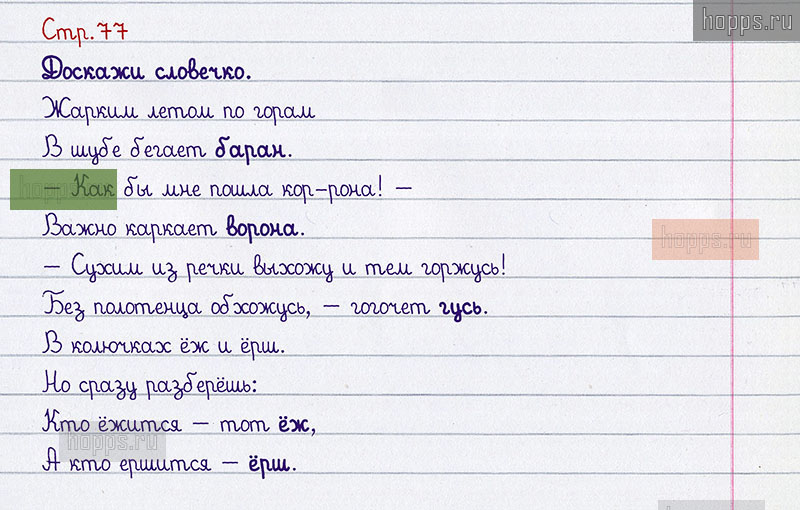 hopps.ru
Стр. 77
Доскажи словечко.
Жарким летом по горам
В шубе бегает баран.
hopps.ru
— Как бы мне пошла кор-рона! —
Важно каркает ворона.
hopps.ru
— Сухим из речки выхожу и тем горжусь!
Без полотенца обхожусь, — гогочет гусь.
В колючках ёж и ёрш.
Но сразу разберёшь:
Кто ёжится — тот ёж,
hopps.ru
А кто ершится — ёрш.